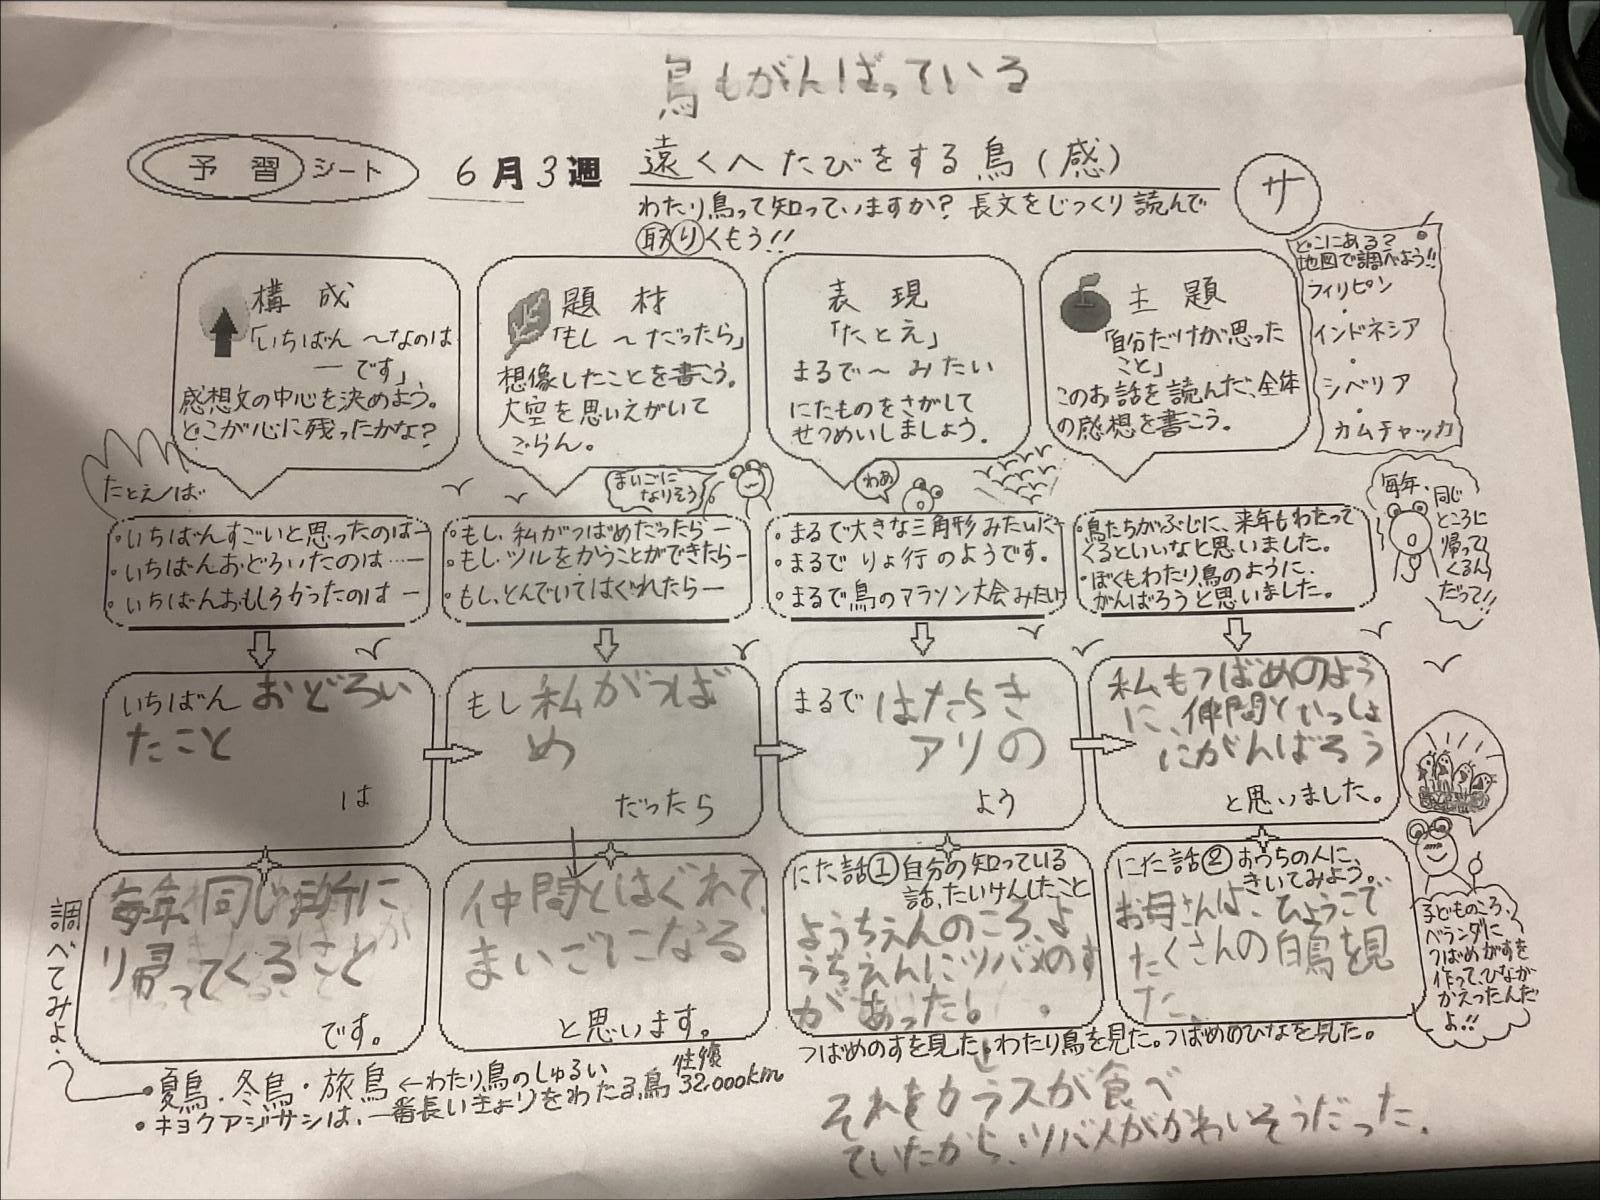 鳥もがんばっている
予習シート 6月3週 遠くへたびをする鳥(感)
サ
わたり鳥って知っていますか？長文をじっくり読んで
取りくもう!!
構成
「いちばん〜なのは
―です」
感想文の中心を決めよう。
どこが心に残ったかな？
題材
「もし〜だったら」
想像したことを書こう。
大空を思いえがいて
ごらん。
表現
「たとえ」
まるで〜みたい
にたものをさがして
せつめいしましょう。
主題
「自分だけが思った
こと」
このお話を読んだ、全体
の感想を書こう。
どこにある？
地図で調べよう!!
フィリピン
・
インドネシア
・
シベリア
・
カムチャッカ
たとえば
まいごに
なりそう
わあ
毎年、同じ
ところに
帰って
くるん
だって!!
・いちばんすごいと思ったのは―
・いちばんおどろいたのは…―
・いちばんおもしろかったのは―
・もし、私がつばめだったら―
・もし、ツルをかうことができたら―
・もし、とんでいてはぐれたら―
・まるで大きな三角形みたいに―
・まるでりょ行のようです。
・まるで鳥のマラソン大会みたい
・鳥たちがぶじに、来年もわたって
くるといいなと思いました。
・ぼくもわたり鳥のように、
がんばろうと思いました。
いちばんおどろい
たこと
は
もし私がつば
め
だったら
まるではたらき
アリの
よう
私もつばめのよう
に、仲間といっしょ
にがんばろう
と思いました。
毎年、同じ所に
り帰ってくること
です。
仲間とはぐれて、
まいごになる
と思います。
にた話①自分の知っている
話、たいけんしたこと
ようちえんのころ、よ
うちえんにツバメのす
があった。
にた話②おうちの人に、
きいてみよう。
お母さんは、ひょうこで
たくさんの白鳥を見
た。
子どものころ、
ベランダに
つばめがすを
作って、ひなが
かえったんだ
よ!!
つばめのすを見た。わたり鳥を見た。つばめのひなを見た。
それをカラスが食べ
ていたから、ツバメがかわいそうだった。
調べてみよう
・夏鳥・冬鳥・旅鳥←わたり鳥のしゅるい
・キョクアジサシは、一番長いきょりをわたる鳥 往復 32,000km